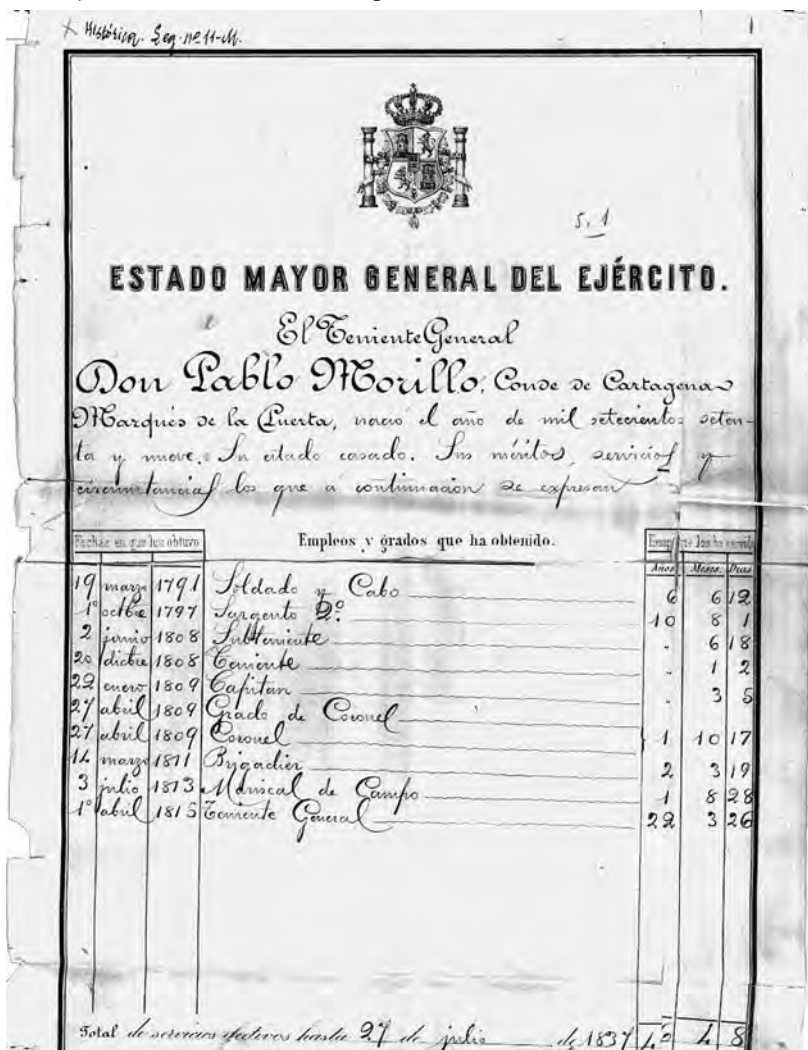 Histórica. Leg. nº 11-M.
1
5, 1
ESTADO MAYOR GENERAL DEL EJÉRCITO.
El Teniente General
Don Pablo Morillo, Conde de Cartagena
Marqués de la Puerta, nació el año de mil setecientos seten-
ta y nueve. Su estado casado. Sus méritos, servicios y
circunstancias los que a continuacion se expresan
Fechas en que los obtuvo Empleos y grados que ha obtenido. Tiempo que los ha servido
Años Meses. Dias
19 marzo 1791 Soldado y Cabo 6 6 12
1º octbre 1797 Sargento 2º 10 8 1
2 junio 1808 Subteniente . 6 18
20 dicbre 1808 Teniente . 1 2
22 enero 1809 Capitan . 3 5
27 abril 1809 Grado de Coronel
27 abril 1809 Coronel 1 10 17
14 marzo 1811 Brigadier 2 3 19
3 julio 1813 Mariscal de Campo 1 8 28
1º abril 1815 Teniente General 22 3 26
Total de servicios efectivos hasta 27 de julio de 1837 4 8